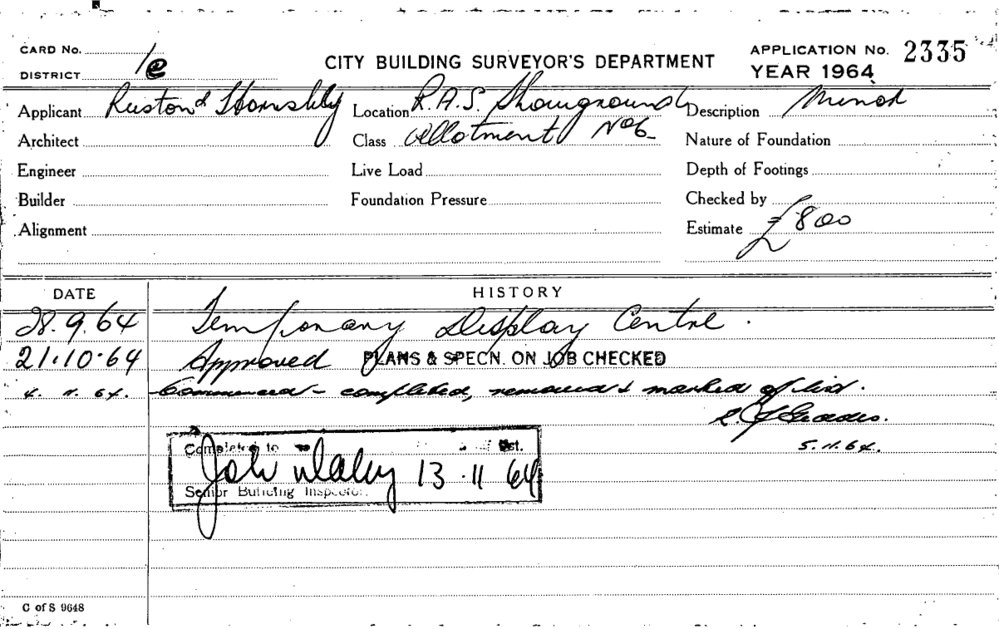 CARD No. CITY BUILDING SURVEYOR'S DEPARTMENT APPLICATION No. 2335
DISTRICT 1e YEAR 1964
Applicant Ruston & Hornsby Location R.A.S. Showground Description Minor
Architect Class Allotment No 6 Nature of Foundation
Engineer Live Load Depth of Footings
Builder Foundation Pressure Checked by
Alignment Estimate £800
DATE HISTORY
28.9.64 Temporary Display Centre.
21.10.64 Approved PLANS & SPECN. ON JOB CHECKED
4.11.64. Commenced - completed, removed & marked of list.
5.11.64.
Completed to Dist.
13 11 64
Senior Building Inspector.
C of S 9648